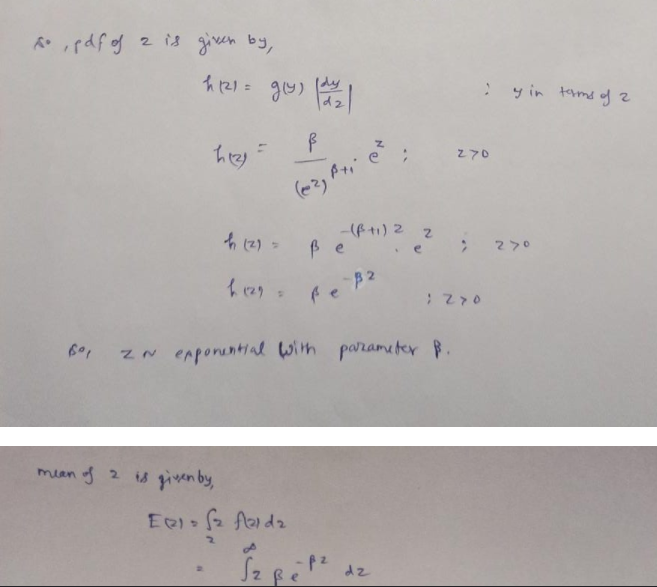 So, pdf of z is given by,
h(z) = g(y) |dy/dz| ; y in terms of z
h(z) = β/(e^z)^{β+1} . e^z ; z>0
h(z) = β e^{-(β+1)z} . e^z ; z>0
h(z) = β e^{-βz} ; z>0
So, z ~ exponential with parameter β.
mean of z is given by,
E(z) = ∫_z z f(z) dz
= ∫^∞ z β e^{-βz} dz